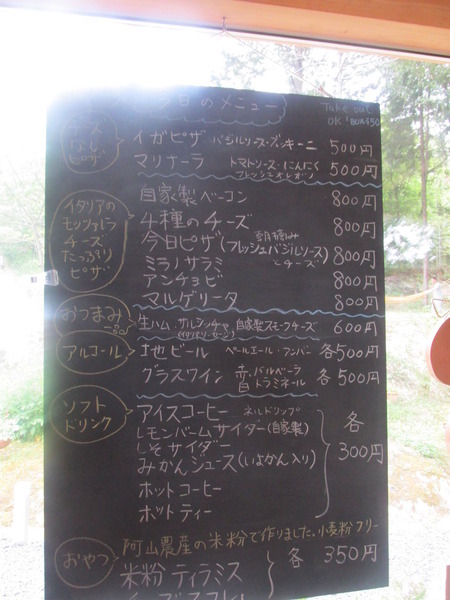 今日のメニュー
Take out
OK! BOX¥50
なし
ピザ
イガピザ バジルソース・ズッキーニ 500円
マリナーラ トマトソース・にんにく 500円
フレッシュオレガノ
イタリアの
モッツァレラ
チーズ
たっぷり
ピザ
自家製ベーコン 800円
4種のチーズ 800円
今日ピザ(朝摘み フレッシュバジルソースとチーズ) 800円
ミラノサラミ 800円
アンチョビ 800円
マルゲリータ 800円
おつまみ
生ハム・サルシッチャ 自家製スモークチーズ 600円
アルコール
地ビール ペールエール・アンバー 各500円
グラスワイン バルベーラ 各500円
トラミネール
ソフト
ドリンク
アイスコーヒー ネルドリップ
レモンバームサイダー(自家製)
しそサイダー
みかんジュース(いよかん入り)
ホットコーヒー
ホットティー
各
300円
おやつ
阿山農産の米粉で作りました。小麦粉フリー
米粉ティラミス
各 350円